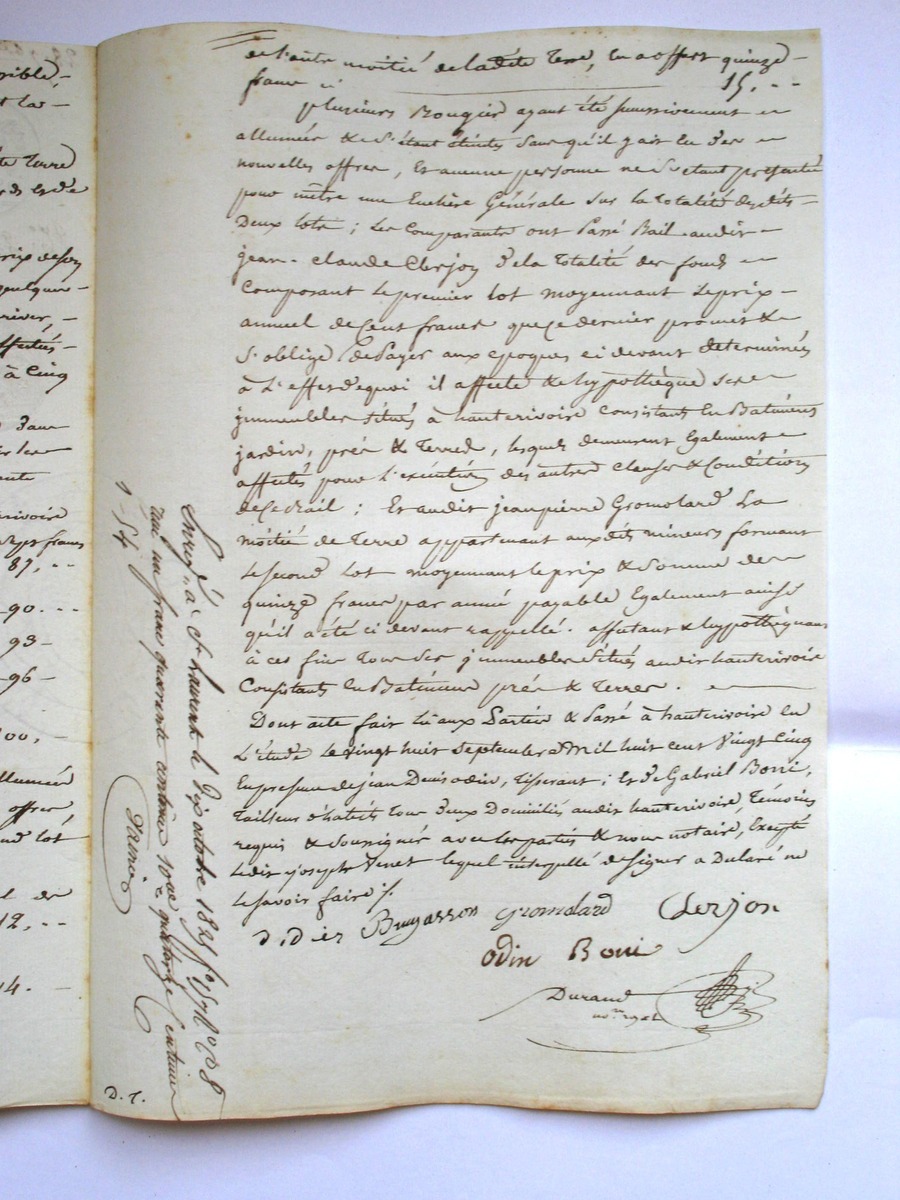 de l'autre moitié de ladite Terre, en a offert quinze
francs ci 15. --
plusieurs Bougies ayant été successivement
allumées & s'étant éteintes sans qu'il y ait eu des
nouvelles offres, Et aucune personne ne s'étant présentée
pour mettre une Enchère Générale sur la Totalité desdits
Deux lots ; Les Comparants ont Passé Bail audit
jean-claude Clerjon de la Totalité des fonds
Composant Le premier lot moyennant Le prix
annuel de Cent francs que ce dernier promet &
s'oblige de Payer aux époques ci devant determinées
à L'effet de quoi il affecte & hypothèque ses
jmmeubles situés à hauterivoire Consistants En Batiments
jardin, prés & Terres, lesquels demeurent Egalement
affectés pour L'exécution des autres clauses & Conditions
de Ce Bail ; Et audit jeanpierre Gromolard La
moitié de Terre appartenant auxdits mineurs formant
Le second lot moyennant le prix & somme de
quinze francs par année payable Egalement ainsi
qu'il a été ci devant rappellé. affectant & hypothéquant
à ces fins Tous ses jmmeubles situés audit hauterivoire
Consistants En Batiments prés & Terres.
Dont acte fait Lu aux Parties & Passé à hauterivoire En
L'étude Le vingt huit septembre Mil huit cent Vingt Cinq
En présence de jean Denis odin, tisserant ; Et de Gabriel Borri,
Tailleur d'habits Tous deux Domiciliés audit hauterivoire, Témoins
requis & soussignés avec les parties & nous notaire, Excepté
Ledit joseph Venet lequel interpellé de signer a Déclaré ne
Le savoir faire ./.
Didier Bruyasson Gromolard Clerjon
odin Borri
Durand
Enregé à St Laurent le dix octobre 1825 fo
reçu un franc quarante centime 10e quatorze Centimes
1 - 54
D. T.
rible,
t la
Terre
rix de
quelqu
river,
ffectés
à Cinq
rivoire
sept francs
87, --
90. --
93 -
96 -
100,
allumées
offres
lot
de
12, --
14. -